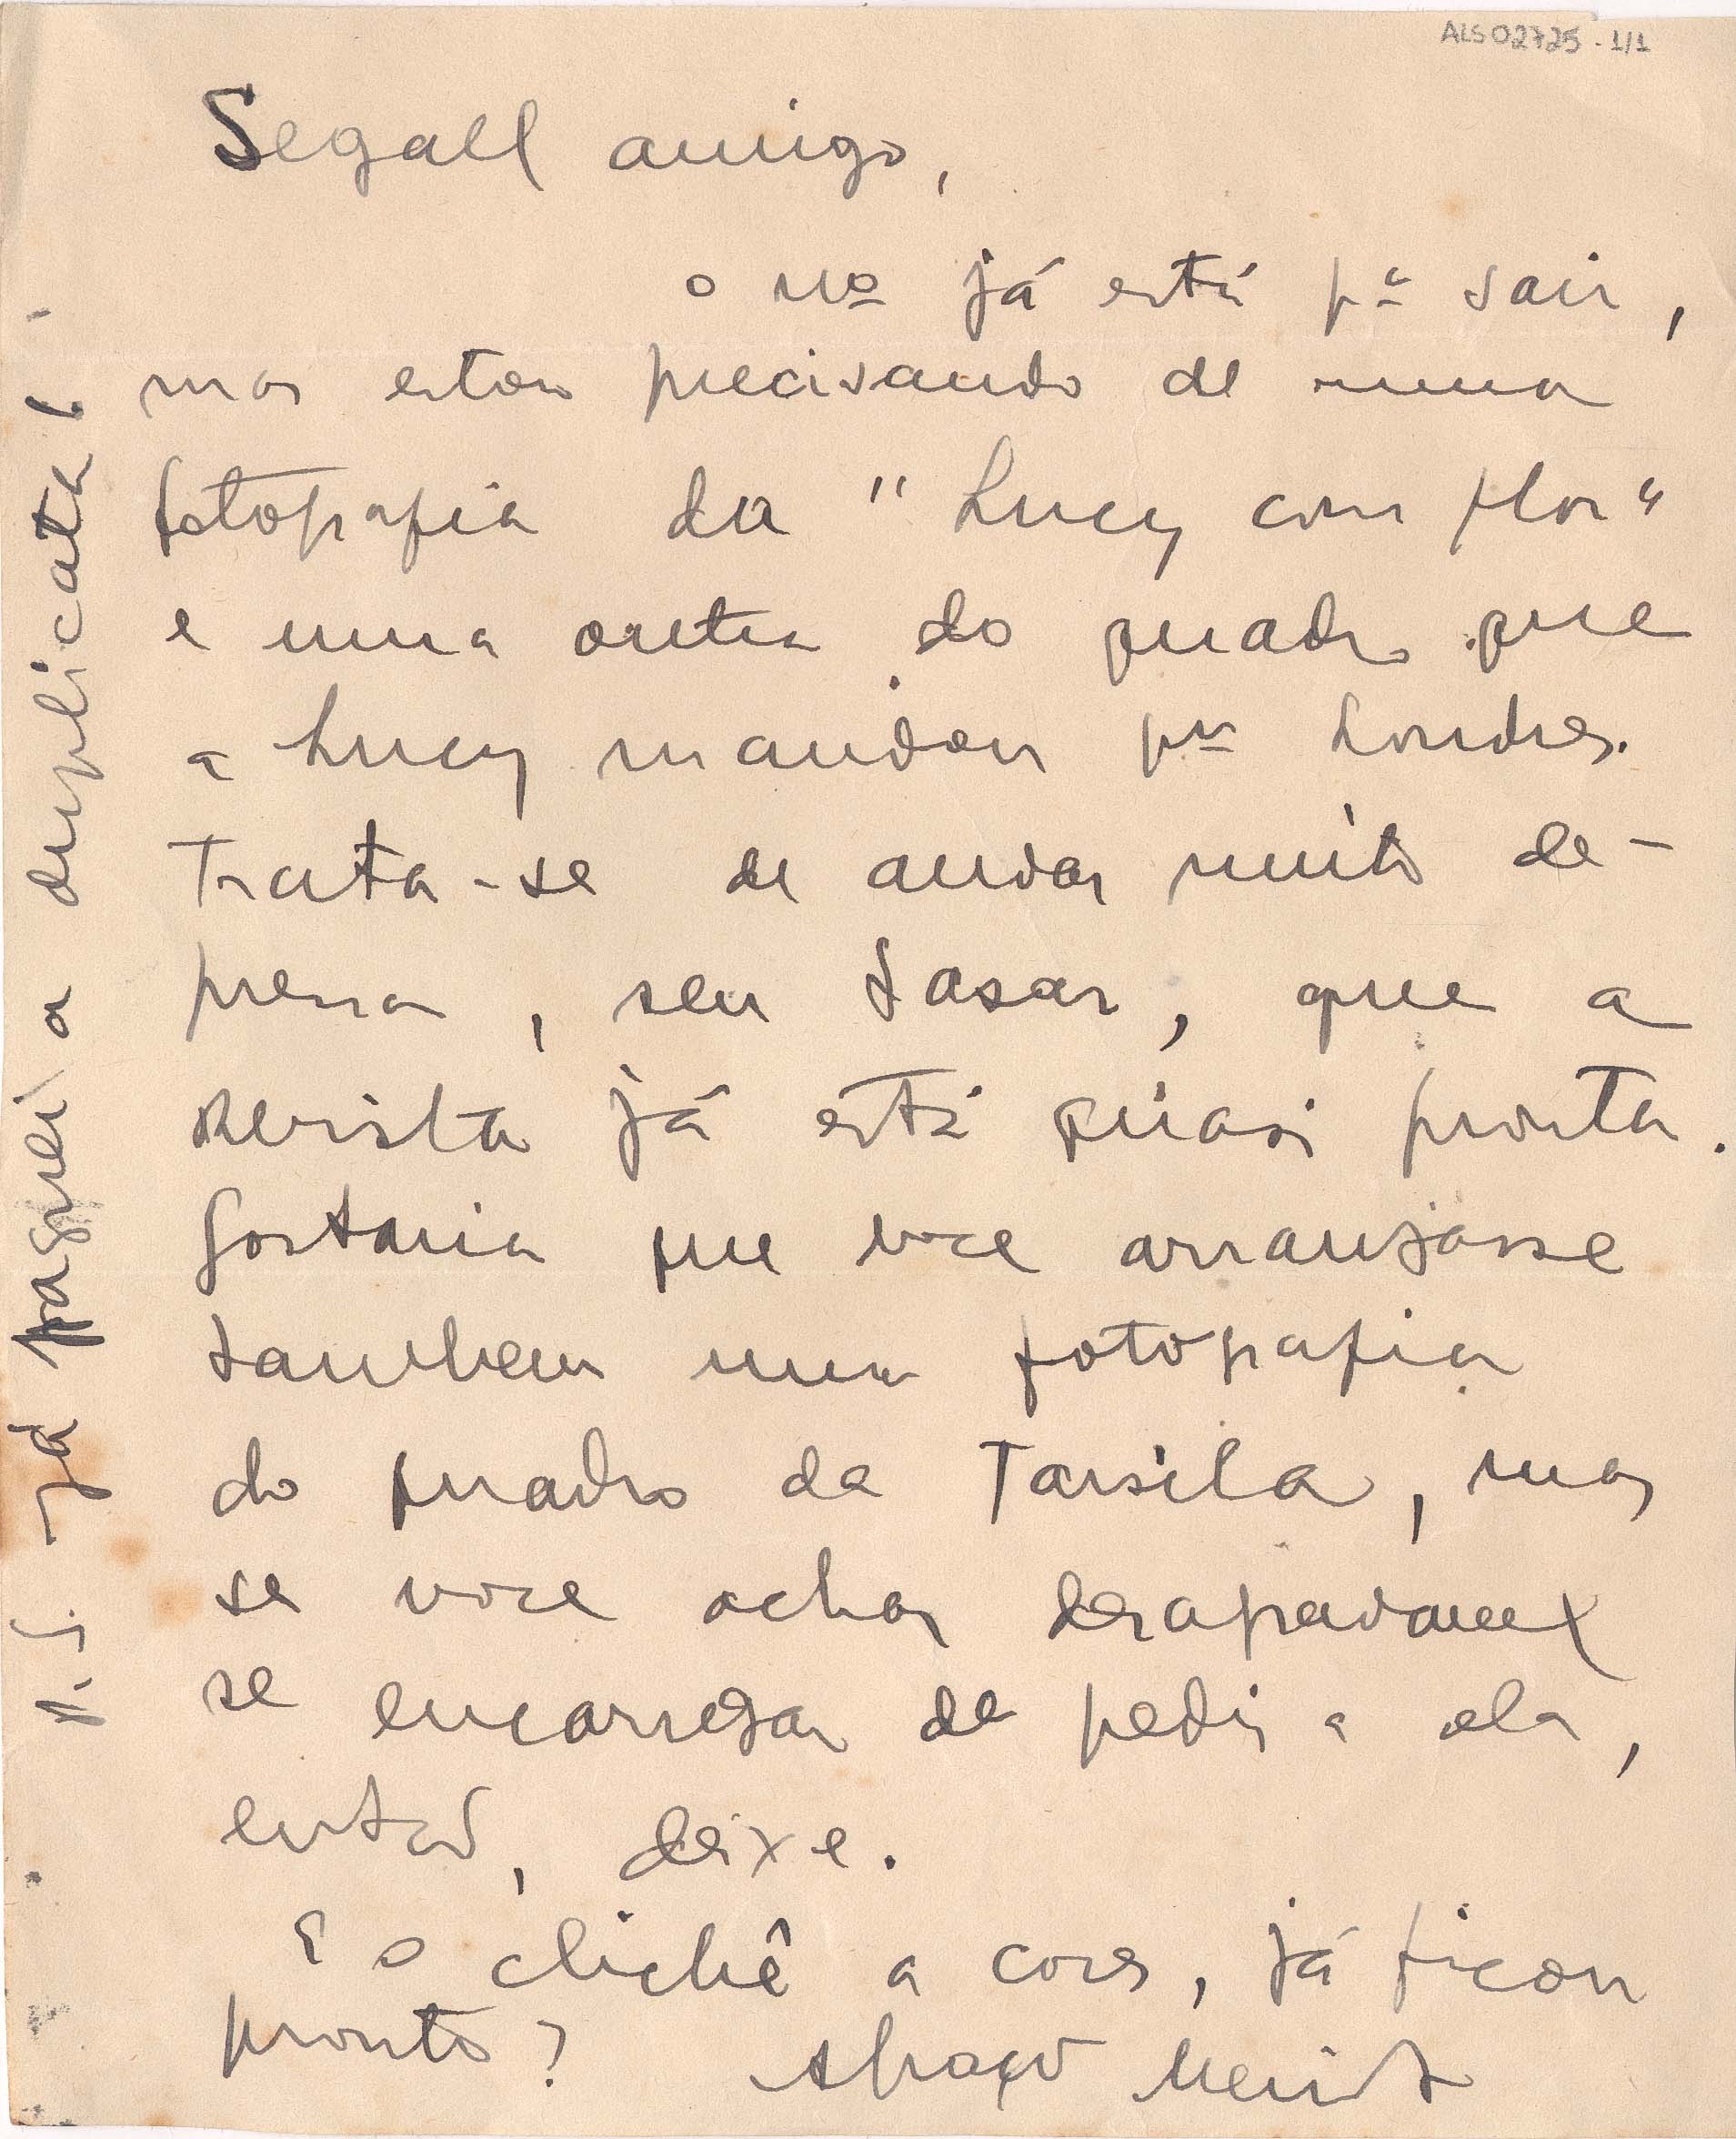 ALS 02725 - 1/1
Segall amigo,
o nº já está pª sair,
mas estou precisando de uma
fotografia da "Lucy com flor"
e uma outra do quadro que
a Lucy mandou pra Londres.
Trata-se de andar muito de-
pressa, seu Lasar, que a
revista já está quasi pronta.
Gostaria que voce arranjasse
tambem uma fotografia
do quadro da Tarsila, mas
se voce achar desagradavel
se encarregar de pedir a ela,
então, deixe.
E o clichê a cores, já ficou
pronto? Abraço Murilo
Já paguei a duplicata!